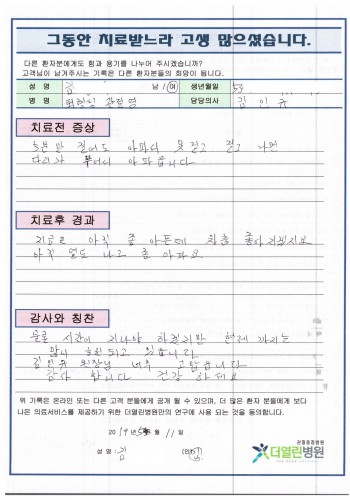 그동안 치료받느라 고생 많으셨습니다.
다른 환자분에게도 힘과 용기를 나누어 주시겠습니까?
고객님이 남겨주시는 기록은 다른 환자분들의 희망이 됩니다.
성 명 김 남 / 여 생년월일 53
병 명 퇴행성 관절염 담당의사 김인규
치료전 증상
5분만 걸어도 아파다 못걷고 걷고 나면
다리가 부어 아파습니다
치료후 경과
지금도 아직 좀 아픈데 차츰 좋아지겠지요
아직 열도 나고 좀 아파요
감사와 칭찬
물론 시간이 지나야 하겠지만 현재 까지는
많이 호전되고 있습니다
김인규 원장님 너무 고맙습니다
감사 합니다 건강 하세요
위 기록은 온라인 또는 다른 고객 분들에게 공개 될 수 있으며, 더 많은 환자 분들에게 보다
나은 의료서비스를 제공하기 위한 더열린병원만의 연구에 사용 되는 것을 동의합니다.
2019년 5월 11일
성 명 : 김 (인)
관절중점병원
더열린병원